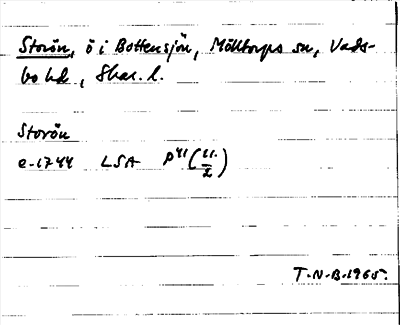 Storön, ö i Bottensjön, Mölltorps sn, Vads-
bo hd, Skar. l.
Storön
e-1744 LSA P41(11./2)
T-N-B-1965.